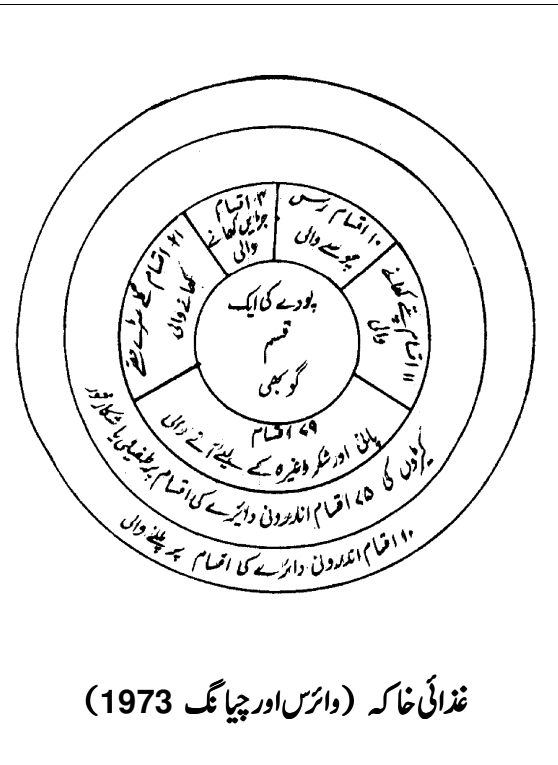 ۱۰ اقسام رس
چوسنے والی
۴ اقسام
جڑیں کھانے
والی
۲۱ اقسام گلے سڑے حصے
کھانے والی
۱۱ اقسام پتے کھانے
والی
پودے کی ایک
قسم
گوبھی
۷۹ اقسام
پانی اور شکر وغیرہ کے لیے آنے والی
کیڑوں کی ۷۵ اقسام اندرونی دائرے کی اقسام پر طفیلی یا شکار خور
۱۰ اقسام اندرونی دائرے کی اقسام پر پلنے والی
غذائی خاکہ (وائرس اور چیانگ 1973)